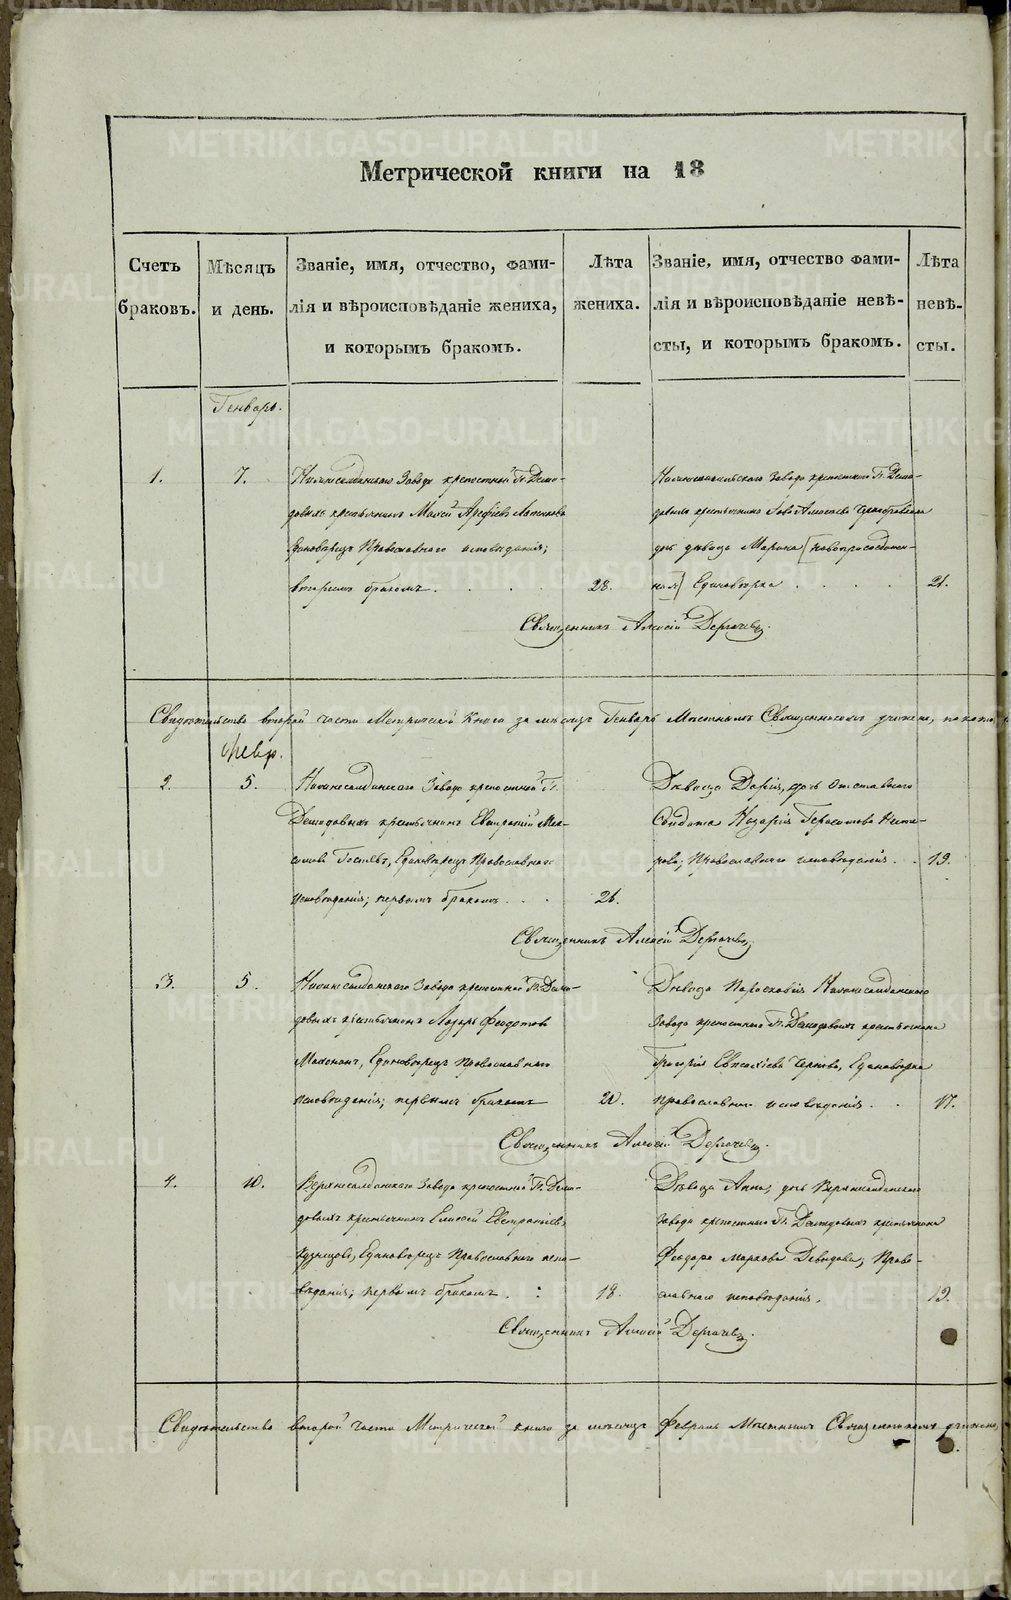 Метрической книги на 18
Счетъ браковъ.
Мѣсяцъ и день.
Званіе, имя, отчество, фами-
лія и вѣроисповѣданіе жениха,
и которымъ бракомъ.
Лѣта жениха.
Званіе, имя, отчество фами-
лія и вѣроисповѣданіе невѣ-
сты, и которымъ бракомъ.
Лѣта невѣ-
сты.
Генварь.
1. 7.
Нижнесалдинскаго Завода крепостный Г. Деми-
довыхъ крестьянинъ Арефіевъ
Единоверецъ Православного исповѣданія;
вторымъ бракомъ. 28.
Завода крепостнаго Г. Деми-
довыхъ крестьянина
дочь девица Марина [новоприсоединен-
ная] Единоверка 21.
Священникъ Алексій Дерягинъ.
Свидетельство второй части Метрической Книги за месяцъ Генварь Местнымъ Священникомъ учинено,
Февр.
2. 5.
Нижнесалдинскаго Завода крепостный Г.
Демидовыхъ крестьянинъ Евстратій Мак-
симовъ Единоверецъ Православного
исповѣданія; первымъ бракомъ 21.
Девица Дарія, дочь Отставного
Солдата Назарія Герасимова
Православного исповѣданія 19.
Священникъ Алексій Дерягинъ.
3. 5.
Нижнесалдинскаго Завода крепостный Г. Деми-
довыхъ крестьянинъ Лазарь Федотовъ
Единоверецъ Православнаго
исповѣданія; первымъ бракомъ 20.
Девица Параскевія Нижнесалдинскаго
Завода крепостнаго Г. Демидовыхъ крестьянина
Григорія Единоверка
православнаго исповѣданія 17.
Священникъ Алексій Дерягинъ.
4. 10.
Верхнесалдинскаго Завода крепостный Г. Деми-
довыхъ крестьянинъ Елисей Евстратіевъ
Кузнецовъ, Единоверецъ Православнаго испо-
вѣданія; первымъ бракомъ. 18.
Девица Анна, дочь Верхнесалдинскаго
завода крепостнаго Г. Демидовыхъ крестьянина
Федора Маркова Давыдова, Право-
славнаго исповѣданія. 19.
Священникъ Алексій Дерягинъ.
Свидетельство второй части Метрической книги за месяцъ Февраль Местнымъ Священникомъ учинено,
METRIKI.GASO-URAL.RU